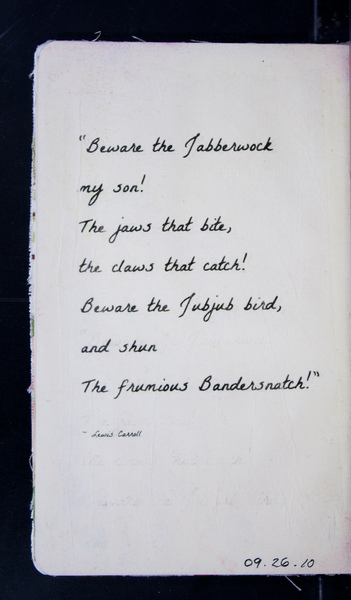 "Beware the Jabberwock
my son!
The jaws that bite,
the claws that catch!
Beware the Jubjub bird,
and shun
The frumious Bandersnatch!"
- Lewis Carroll
09.26.10